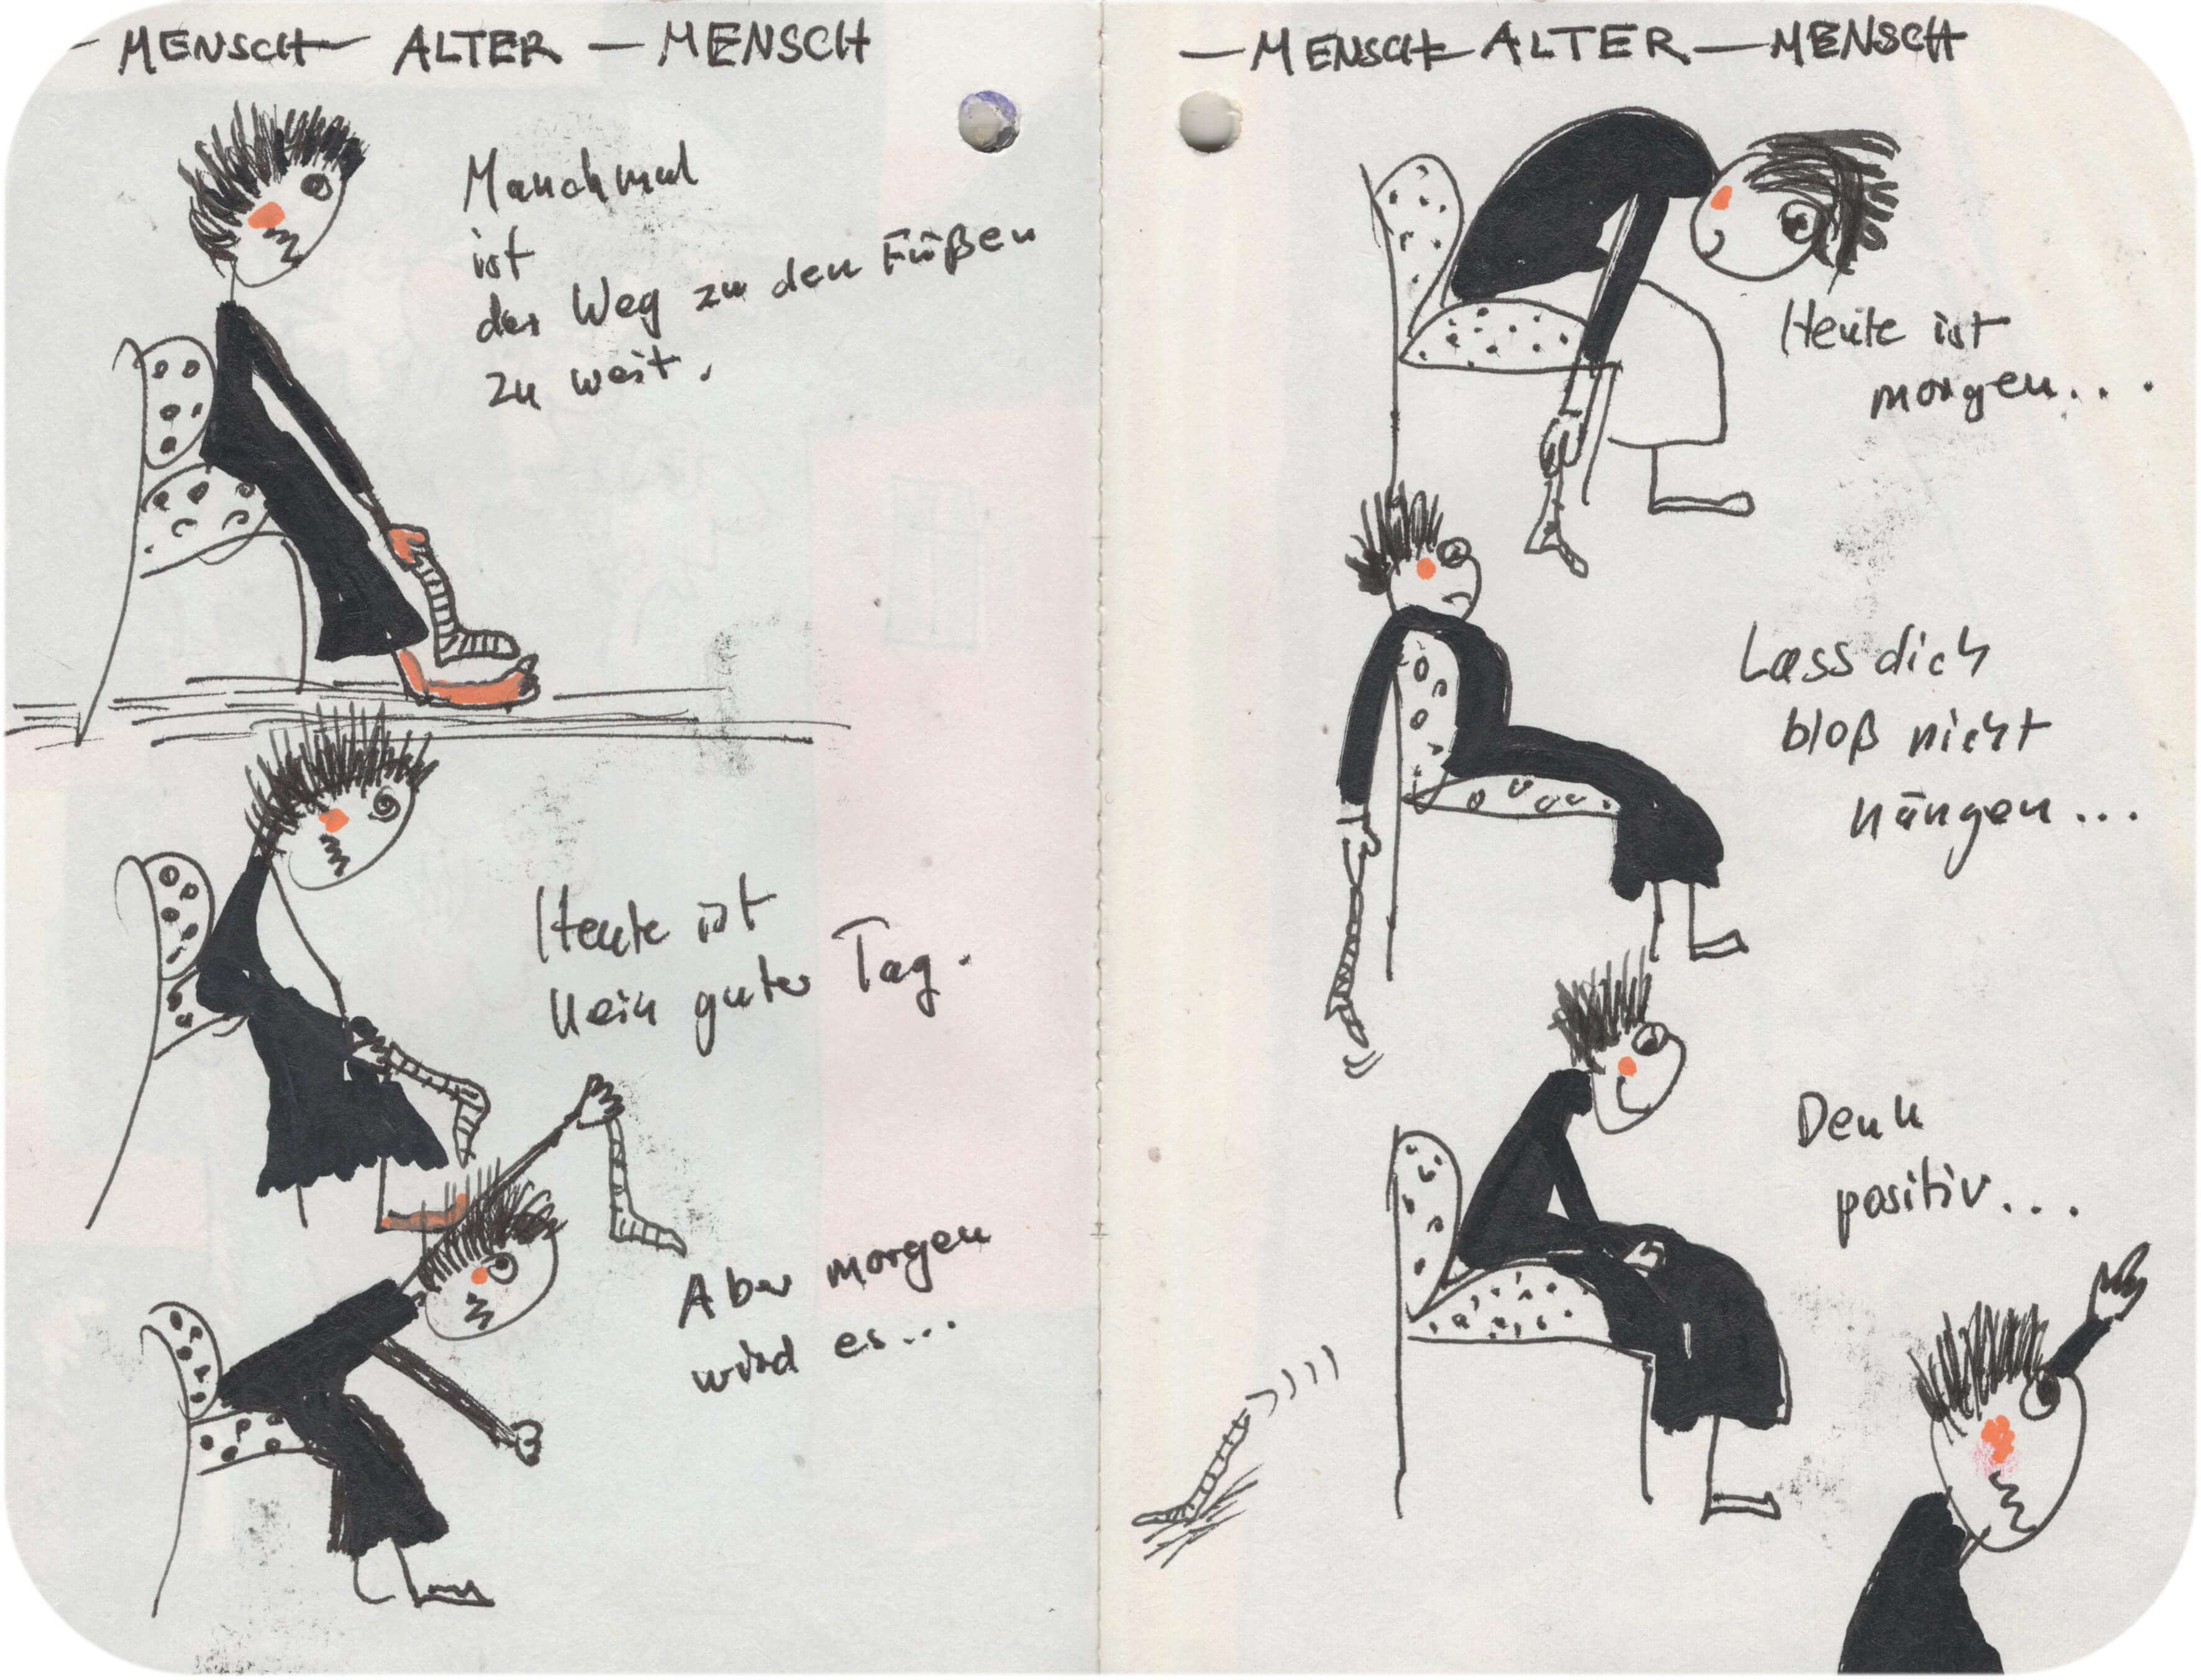 – MENSCH – ALTER – MENSCH
Manchmal
ist
der Weg zu den Füßen
zu weit.
Heute ist
kein guter Tag.
Aber morgen
wird es...
– MENSCH – ALTER – MENSCH
Heute ist
morgen...
Lass dich
bloß nicht
hängen...
Denk
positiv...